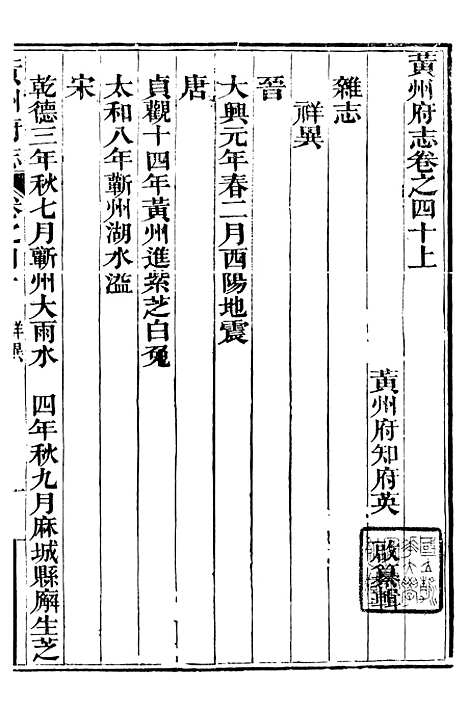 黃州府志卷之四十上
黃州府知府英啟纂輯
雜志
祥異
晉
大興元年春二月西陽地震
唐
貞觀十四年黃州進紫芝白兔
太和八年蘄州湖水溢
宋
乾德三年秋七月蘄州大雨水　四年秋九月麻城縣廨生芝
黃州府志　卷之四十　祥異　一